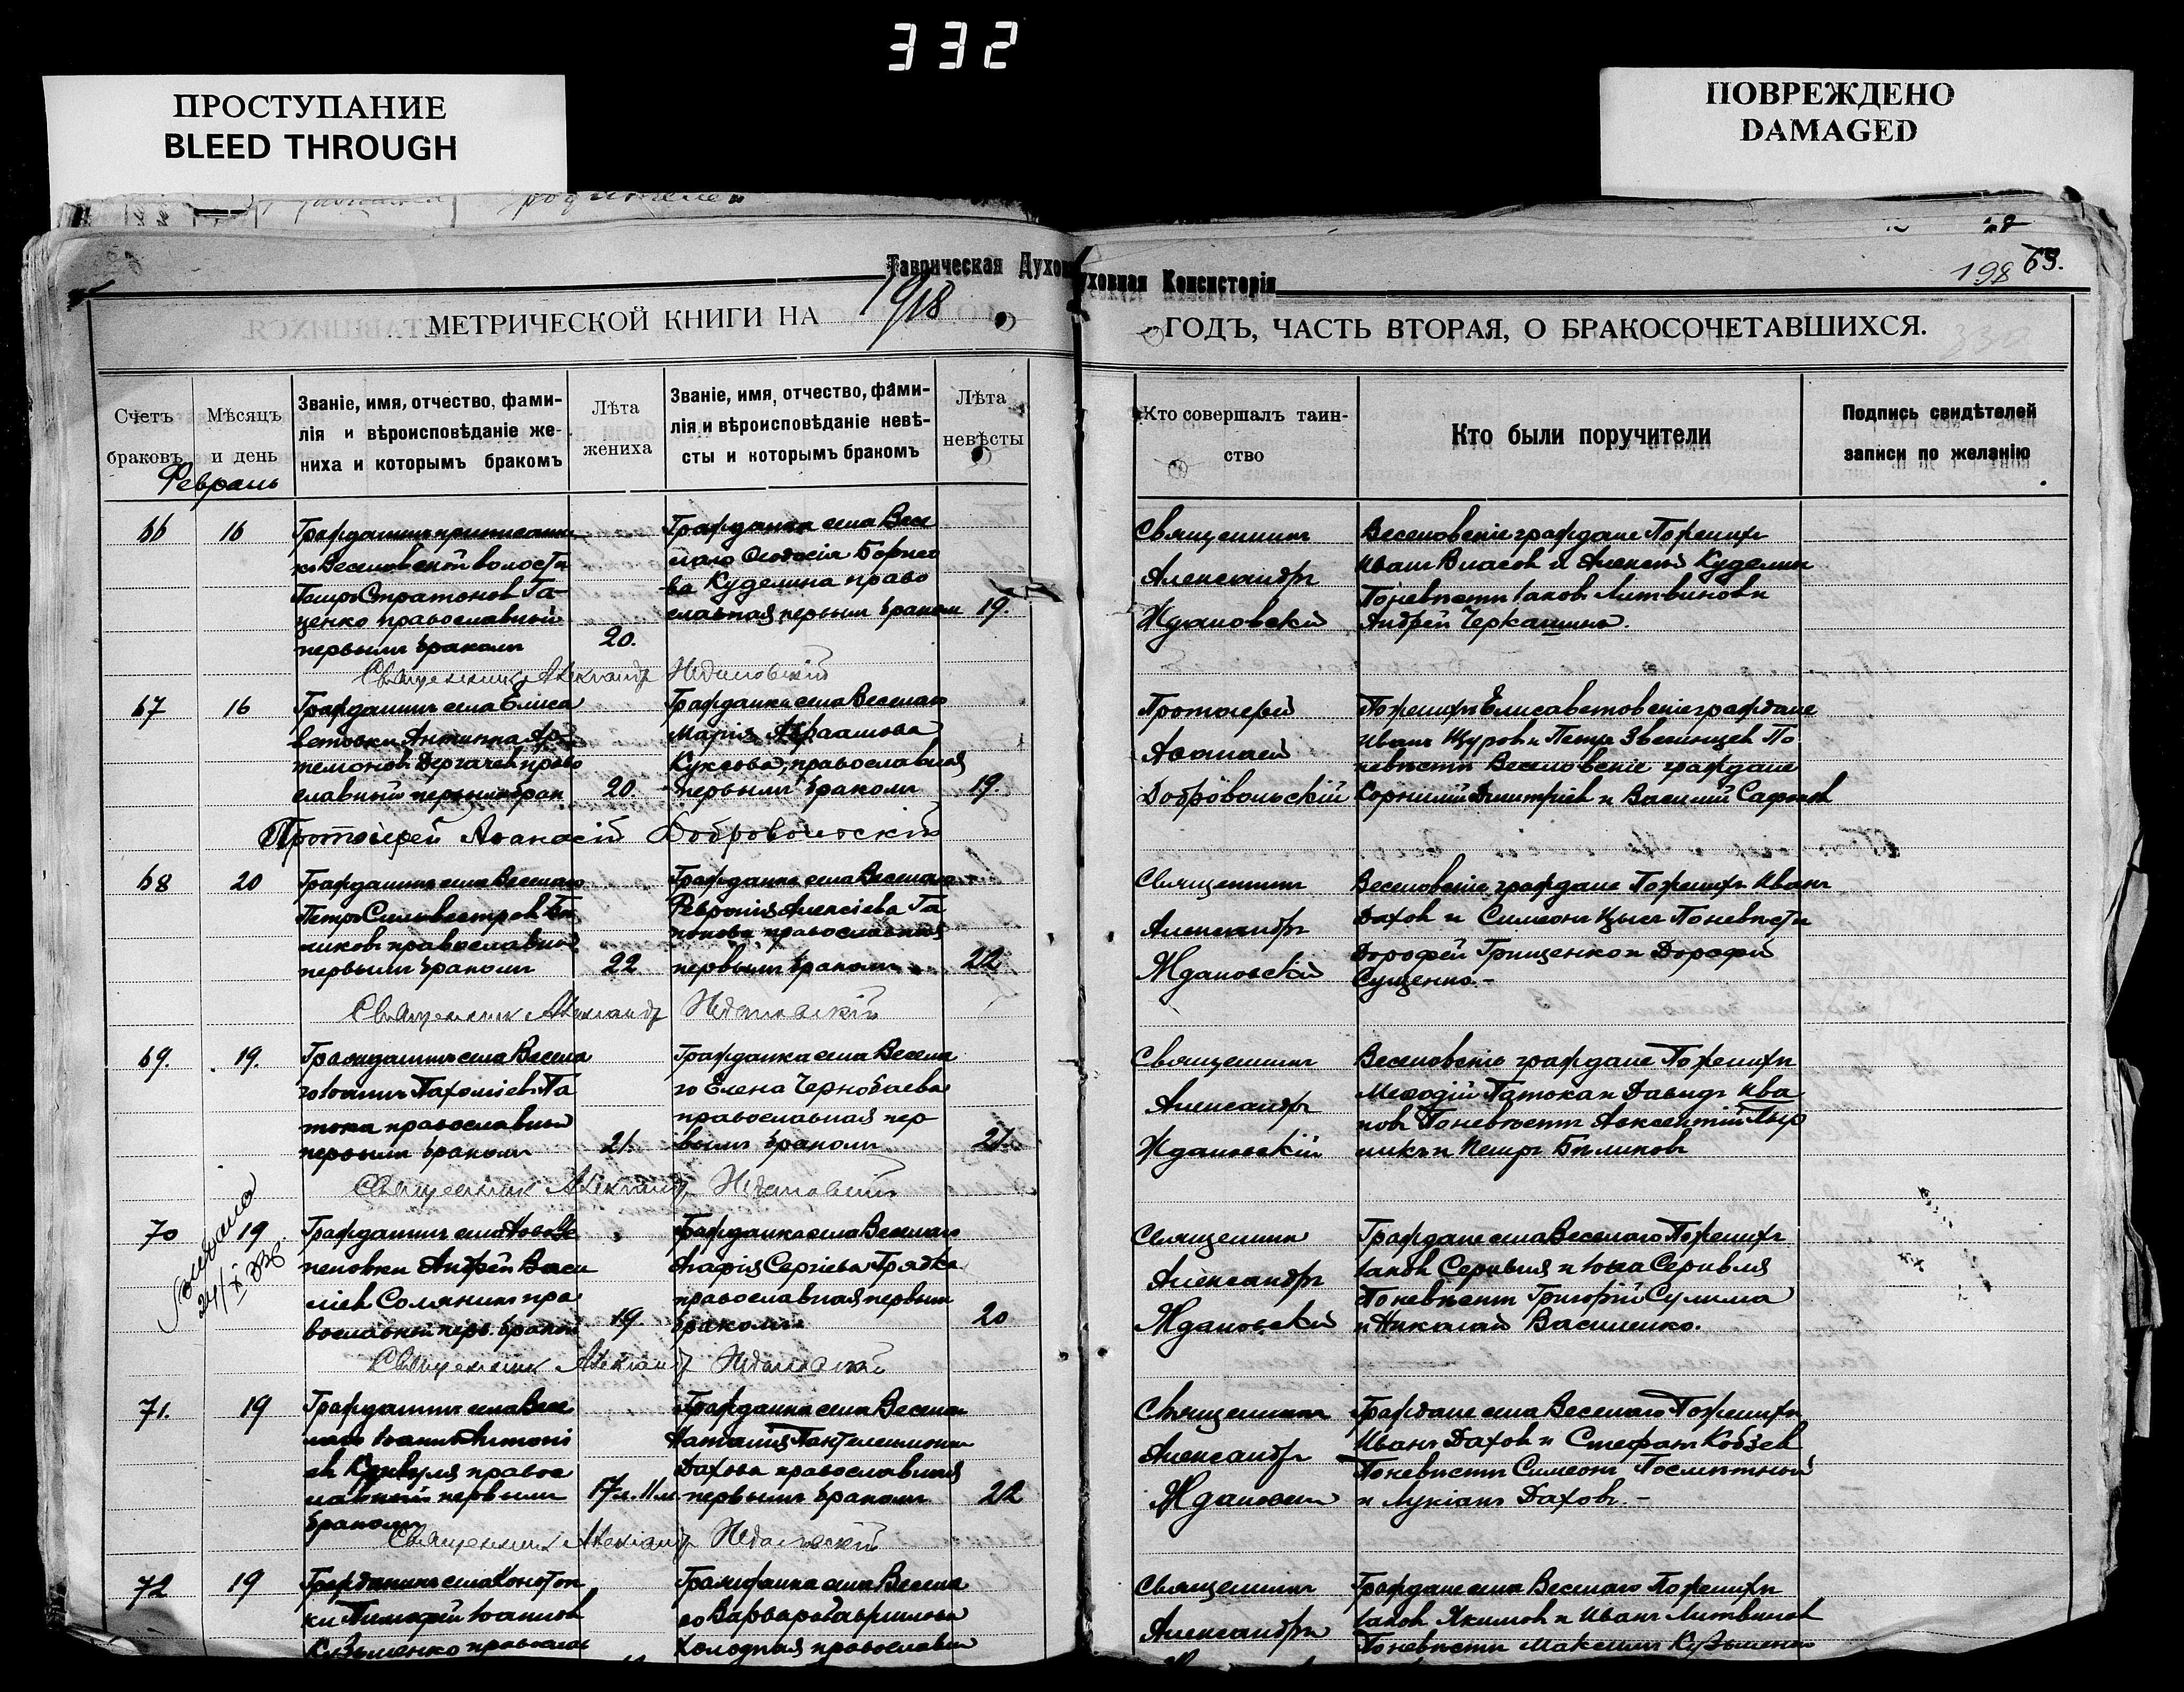 332
ПРОСТУПАНИЕ
BLEED THROUGH
ПОВРЕЖДЕНО
DAMAGED
родителей
Таврическая Духовная Консисторія
198 63.
МЕТРИЧЕСКОЙ КНИГИ НА 1918 ГОДЪ, ЧАСТЬ ВТОРАЯ, О БРАКОСОЧЕТАВШИХСЯ.
Счетъ браковъ
Мѣсяцъ и день
Званіе, имя, отчество, фами-
лія и вѣроисповѣданіе же-
ниха и которымъ бракомъ
Лѣта
жениха
Званіе, имя, отчество, фами-
лія и вѣроисповѣданіе невѣ-
сты и которымъ бракомъ
Лѣта
невѣсты
Кто совершалъ таин-
ство
Кто были поручители
Подпись свидѣтелей
записи по желанію
Февраль
66
16
Гражданинъ
Веселовской волости
Петръ Стратоновъ Га-
ценко православный
первымъ бракомъ
20.
Гражданка села Весе
лаго Ѳеодосія
ва Куделина право
славная первым браком
19.
Священникъ
Александръ
Ждановскій
Веселовскіе граждане По женихѣ
Иванъ Власов и Алексѣй Куделин
По невѣстѣ Іаковъ Литвинов и
Андрей Черкашинъ.
Священник Александр Ждановский
67
16
Гражданинъ села Елиса
ветовки Антипа Ар
темонов Дергачев право
славный первым брак
20.
Гражданка села Веселаго
Марія Авраамова
Куксова, православная
первымъ бракомъ
19.
Протоіерей
Аѳанасій
Добровольскій
По женихѣ Елисаветовскіе граждане
Иванъ Щуров и Петръ Звенищев По
невѣстѣ Веселовскіе граждане
Корнилій Дмитріев и Василій Сафонов
Протоіерей Аѳанасій Добровольскій
68
20
Гражданинъ села Веселаго
Петръ Силивестров Бѣ
ликовъ православный
первымъ бракомъ
22
Гражданка села Веселаго
Февронія Алексіева Га
понова православная
первымъ бракомъ
22
Священникъ
Александръ
Ждановскій
Веселовскіе граждане По женихѣ Иванъ
Дахов и Симеонъ Цысъ По невѣстѣ
Дорофей Грищенко и Дорофей
Сущенко.-
Священник Александр Ждановскій
69.
19.
Гражданинъ села Весела
го Іоаннъ Пахоміев Па
тока православный
первымъ бракомъ
21.
Гражданка села Весела
го Елена Чернобаева
православная пер
вымъ бракомъ
21.
Священникъ
Александръ
Ждановскій
Веселовскіе граждане По женихѣ
Меѳодій Патока и Давидъ Ива
нов По невѣстѣ Авксентій
никъ и Петръ Бѣликовъ
Священник Александр Ждановский
70
19
24/X 38г.
Гражданинъ села Ново Ус
пеновки Андрей Васи
ліев Солянинъ пра
вославный перв. браком
19
Гражданка села Веселаго
Марія Сергіева Грядка
православная первым
бракомъ
20
Священникъ
Александръ
Ждановскій
Граждане села Веселаго По женихѣ
Іаков Сергѣевъ и Іона
По невѣстѣ Григорій Сулима
и Николай Василенко.
Священник Александр Ждановский
71.
19
Гражданинъ села Весе
лаго Іоаннъ Антоні
ев православ
ный первым
бракомъ
17 л. 11 м
Гражданка села Веселаго
Наталія Пантелеимонова
Дахова православная
первымъ бракомъ
22
Священникъ
Александръ
Ждановскій
Граждане села Веселаго По женихѣ
Иванъ Дахов и Стефанъ Кобзев
По невѣстѣ Симеонъ Посмѣтный
и Лукіанъ Дахов.-
Священник Александр Ждановский
72
19
Гражданинъ села Конотоп
ки Тимофей Іоаннов
Кузьменко православ
Гражданка села Весела
го Варвара Гавриилова
Холодная православн
Священникъ
Александръ
Граждане села Веселаго По женихѣ
Іаков Якимов и Иванъ Литвинов
По невѣстѣ Максимъ Кузьменко